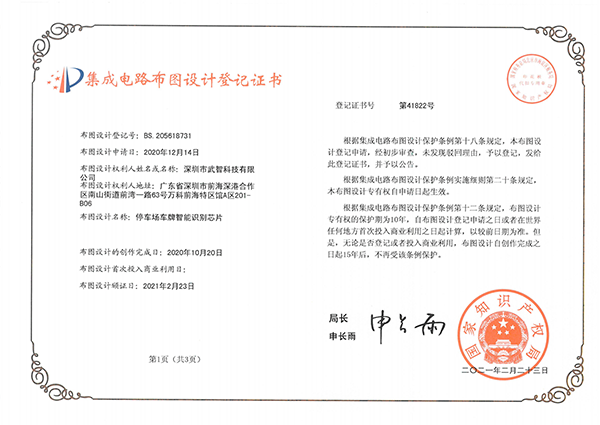 集成电路布图设计登记证书
布图设计登记号: BS. 205618731
布图设计申请日: 2020年12月14日
布图设计权利人姓名或名称: 深圳市武智科技有限
公司
布图设计权利人地址: 广东省深圳市前海深港合作
区南山街道前湾一路63号万科前海特区馆A区201-
B06
布图设计名称: 停车场车牌智能识别芯片
布图设计的创作完成日: 2020年10月20日
布图设计首次投入商业利用日:
布图设计颁证日: 2021年2月23日
第1页 (共3页)
登记证书号 第41822号
根据集成电路布图设计保护条例第十八条规定，本布图设
计登记申请，经初步审查，未发现驳回理由，予以登记，发给
此登记证书，并予以公告。
根据集成电路布图设计保护条例实施细则第二十条规定，
本布图设计专有权自申请日起生效。
根据集成电路布图设计保护条例第十二条规定，布图设计
专有权的保护期为10年，自布图设计登记申请之日或者在世界
任何地方首次投入商业利用之日起计算，以较前日期为准。但
是，无论是否登记或者投入商业利用，布图设计自创作完成之
日起15年后，不再受该条例保护。
局长
申长雨
申长雨
国家知识产权局
二〇二一年二月二十三日